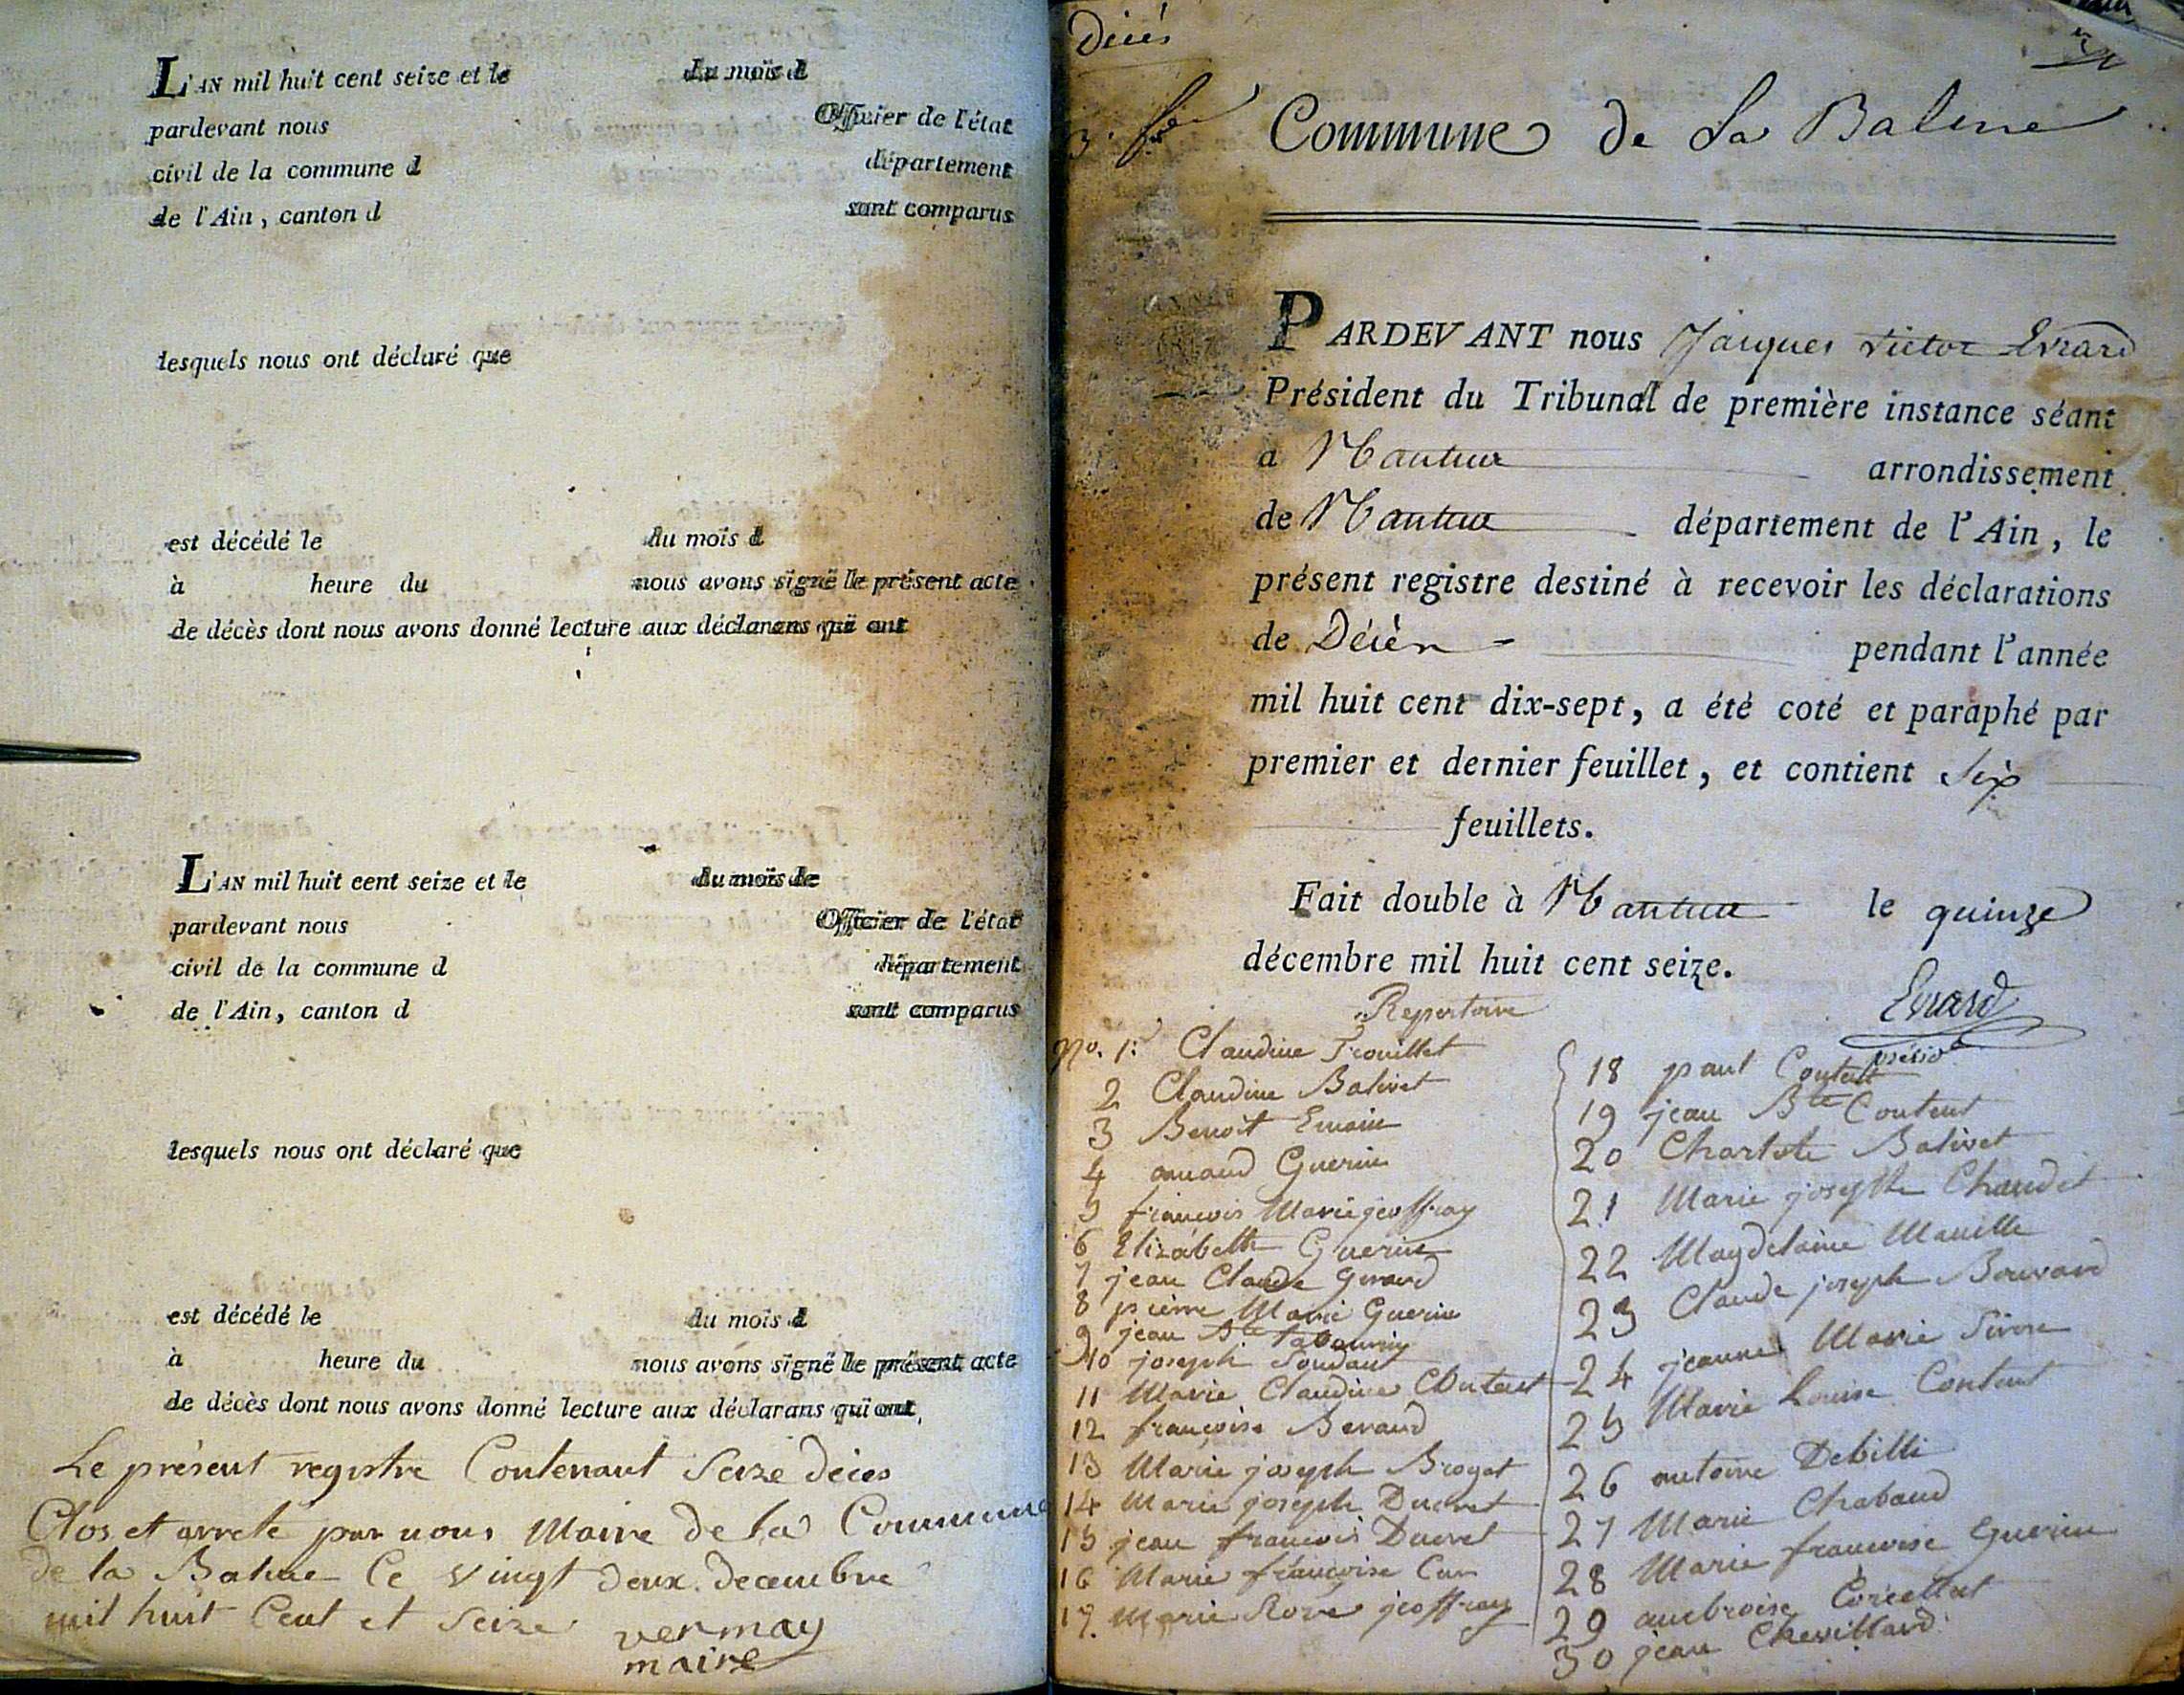 L'AN mil huit cent seize et le du mois d
pardevant nous Officier de l'état
civil de la commune d département
de l'Ain, canton d sont comparus
lesquels nous ont déclaré que
est décédé le du mois d
à heure du nous avons signé le présent acte
de décès dont nous avons donné lecture aux déclarans qui ont
L'AN mil huit cent seize et le du mois de
pardevant nous Officier de l'état
civil de la commune d département
de l'Ain, canton d sont comparus
lesquels nous ont déclaré que
est décédé le du mois d
à heure du nous avons signé le présent acte
de décès dont nous avons donné lecture aux déclarans qui ont
Le présent registre Contenant Seize déces
Clos et arreté par nous Maire de la Commune
de la Balme Ce vingt deux decembre
mil huit Cent et Seize vermay
maire
Décès
Commune de La Balme
PARDEVANT nous Jacques Victor Evrard
Président du Tribunal de première instance séant
à Nantua arrondissement
de Nantua département de l'Ain, le
présent registre destiné à recevoir les déclarations
de Décès pendant l'année
mil huit cent dix-sept, a été coté et paraphé par
premier et dernier feuillet, et contient Six
feuillets.
Fait double à Nantua le quinze
décembre mil huit cent seize.
Evrard
Repertoire
No. 1: Claudine Trouillet
2 Claudine Balivet
3 Benoit
4 Guerin
5 francois Marie geoffray
6 Elizabeth Guerin
7 jean Claude
8 pierre Marie Guerin
9 jean Bte
10 joseph
11 Marie Claudine Contest
12 francoise Beraud
13 Marie joseph
14 Marie joseph Ducret
15 jean francois Ducret
16 Marie francoise
17. Marie Rose geoffray
18 paul
19 jean Bte Contest
20 Charlote Balivet
21 Marie josephte Chaudet
22 Magdelaine
23 Claude joseph Bouvard
24 jeanne Marie
25 Marie Louise Contest
26 antoine Debilli
27 Marie Chabaud
28 Marie francoise Guerin
29 ambroise
30 jean Chevillard